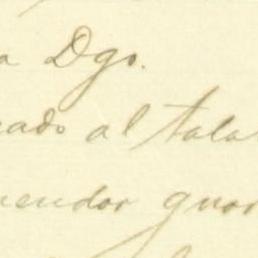 a Dgo.
cado al tala
nendor guar